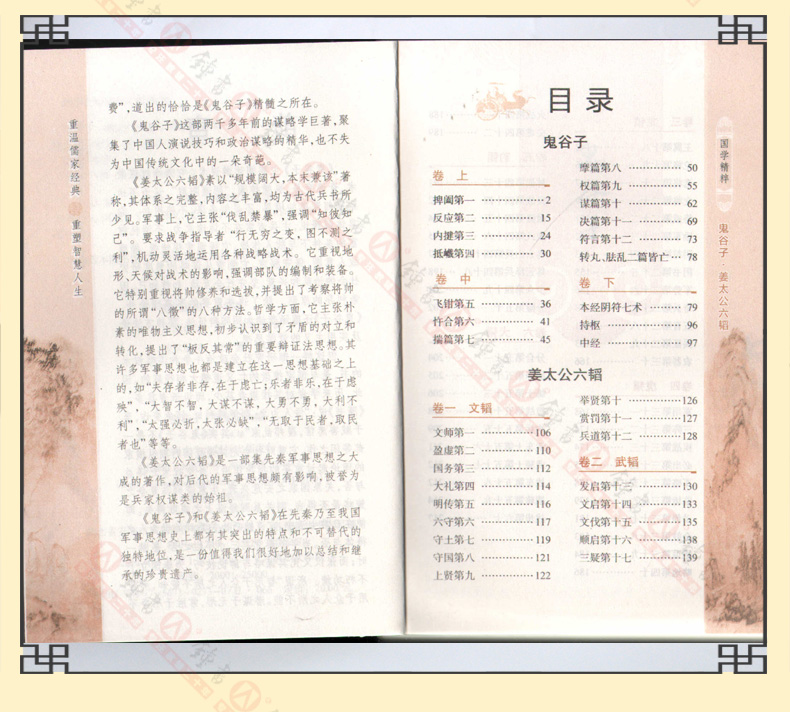 重温儒家经典 重塑智慧人生
费”,道出的恰恰是《鬼谷子》精髓之所在。
《鬼谷子》这部两千多年前的谋略学巨著,聚
集了中国人演说技巧和政治谋略的精华,也不失
为中国传统文化中的一朵奇葩。
《姜太公六韬》素以“规模阔大,本末兼该”著
称,其体系之完整,内容之丰富,均为古代兵书所
少见。军事上,它主张“伐乱禁暴”,强调“知彼知
己”。要求战争指导者“行无穷之变,图不测之
利”,机动灵活地运用各种战略战术。它重视地
形、天候对战术的影响,强调部队的编制和装备。
它特别重视将帅修养和选拔,并提出了考察将帅
的所谓“八徵”的八种方法。哲学方面,它主张朴
素的唯物主义思想,初步认识到了矛盾的对立和
转化,提出了“板反其常”的重要辩证法思想。其
许多军事思想也都是建立在这一思想基础之上
的,如“夫存者非存,在于虑亡;乐者非乐,在于虑
殃”,“大智不智,大谋不谋,大勇不勇,大利不
利”,“太强必折,太张必缺”,“无取于民者,取民
者也”等等。
《姜太公六韬》是一部集先秦军事思想之大
成的著作,对后代的军事思想颇有影响,被誉为
是兵家权谋类的始祖。
《鬼谷子》和《姜太公六韬》在先秦乃至我国
军事思想史上都有其突出的特点和不可替代的
独特地位,是一份值得我们很好地加以总结和继
承的珍贵遗产。
目录
鬼谷子
卷 上
捭阖第一 ·················2
反应第二 ················· 15
内揵第三 ················· 24
抵巇第四 ················· 30
卷 中
飞钳第五 ················· 36
忤合第六 ················· 41
揣篇第七 ················· 45
摩篇第八 ················· 50
权篇第九 ················· 55
谋篇第十 ················· 62
决篇第十一 ·············· 69
符言第十二 ·············· 73
转丸、胠乱二篇皆亡··· 78
卷 下
本经阴符七术 ··········· 79
持枢 ····················· 96
中经 ····················· 97
姜太公六韬
卷一 文韬
文师第一 ················ 106
盈虚第二 ················ 110
国务第三 ················ 112
大礼第四 ················ 114
明传第五 ················ 116
六守第六 ················ 117
守土第七 ················ 119
守国第八 ················ 121
上贤第九 ················ 122
举贤第十 ················ 126
赏罚第十一 ············· 127
兵道第十二 ············· 128
卷二 武韬
发启第十三 ············· 130
文启第十四 ············· 133
文伐第十五 ············· 135
顺启第十六 ············· 138
三疑第十七 ············· 139
国学精粹
鬼谷子·姜太公六韬